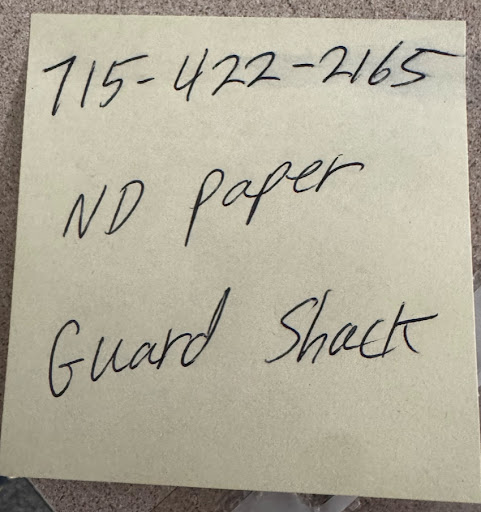 715-422-2165
ND paper
Guard Shack